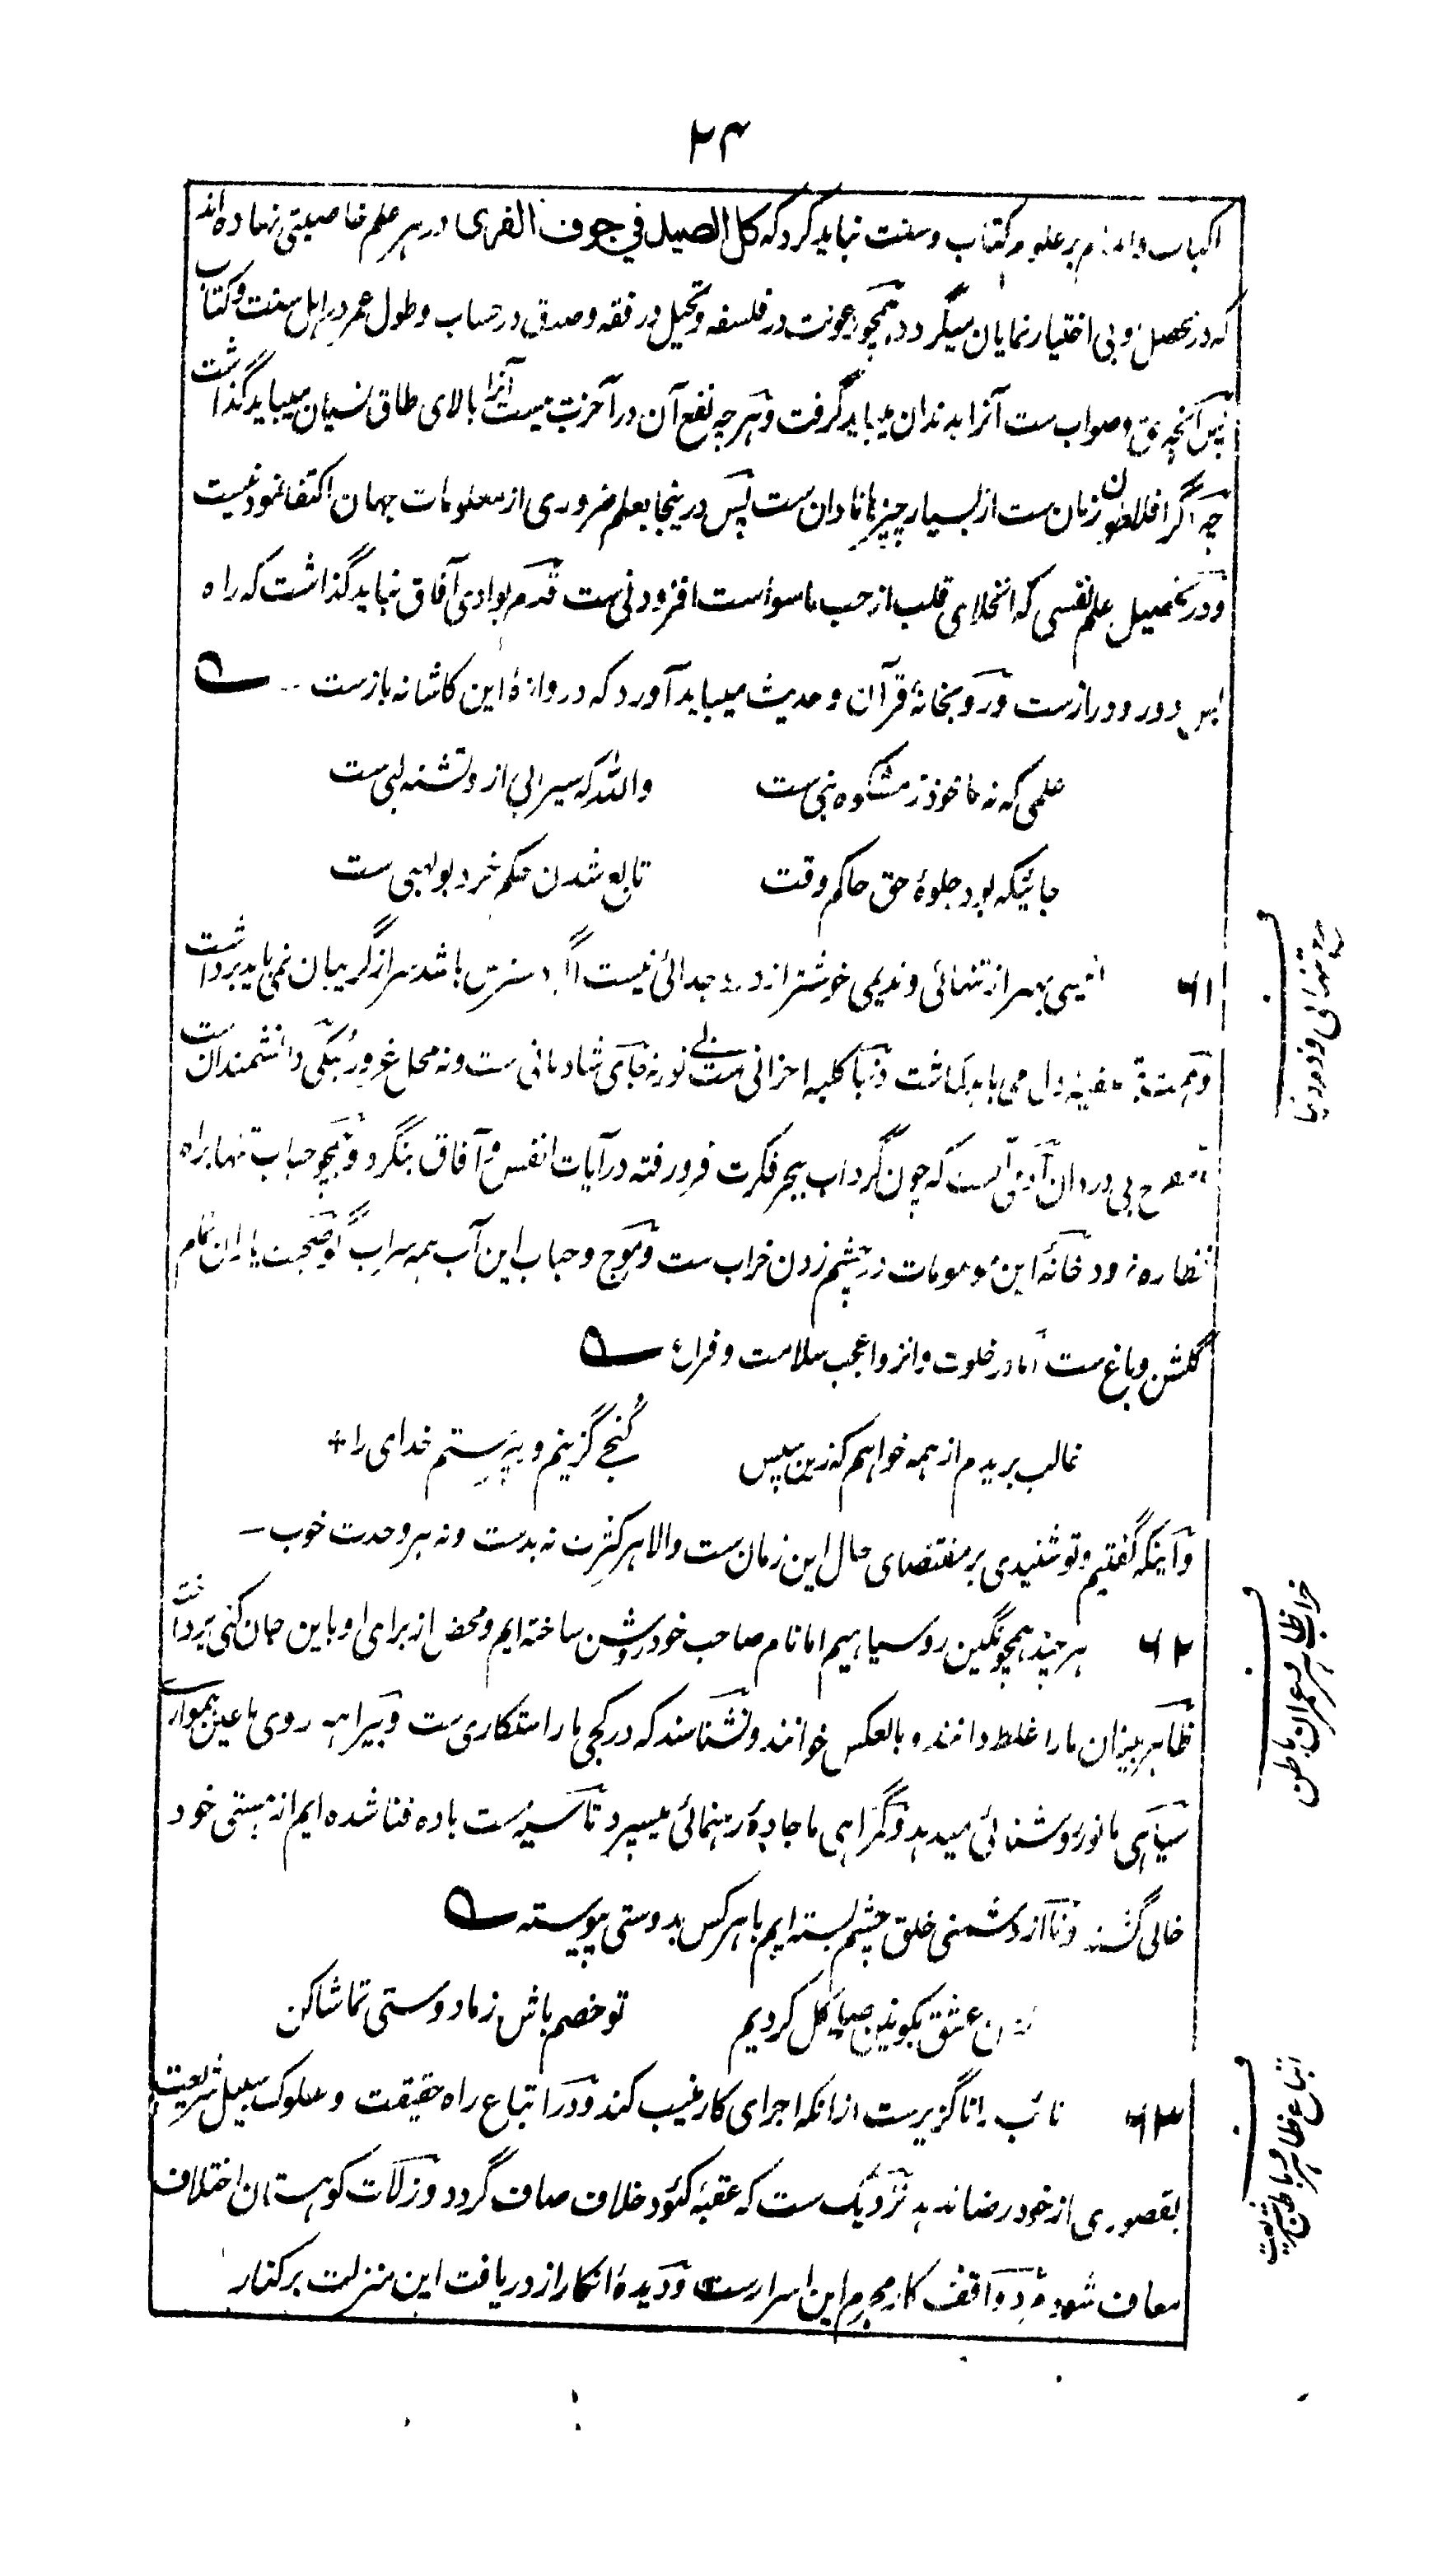 ۲۴
اکباب و بر علوم کتاب و سنت نباید کرد که کل الصید فی جوف الفری در هر علم خاصیتی نهاده اند
که در محصل وبی اختیار نمایان میگردد همچو رعونت در فلسفه و تحیل در فقه و صدق در حساب و طول عمر در اهل سنت و کتاب
پس آنچه حق و صواب ست آنرا بدندان میباید گرفت و هرچه نفع آن در آخرت نیست آنرا بالای طاق نسیان میباید گذاشت
چه اگر افلاطون زمان ست از بسیار چیزها نادان ست پس درینجا بعلم ضروری از معلومات جهان اکتفا نمودنیست
و در تحصیل علم نفسی که انخلای قلب از حب ماسوا است افزودنی ست قدم بوادی آفاق نباید گذاشت که راه
بس دور و دراز ست و رو بخانهٔ قرآن و حدیث میباید آورد که دروازهٔ این کاشانه باز ست
علمی که نه ماخوذ ز مشکوه نبی ست
والله که سیرابی از و تشنه لبی ست
جائیکه بود جلوهٔ حق حاکم وقت
تابع شدن حکم خرد بولهبی ست
۶۱ انیسی بهتر از تنهائی و ندیمی خوشتر از درد جدائی نیست اگر دسترس باشد سر از گریبان نمی باید برداشت
و همت سفینه دل می باید گماشت دنیا کلبه احزانی ست بی نور نه جای شادمانی ست و نه محل غرور نیکی دانشمندان ست
بی دردان آدمی آنست که چون گرداب ببحر فکرت فرو رفته در آیات انفس و آفاق بنگرد و همچو حباب تنها براه
نظاره رود خانهٔ این موهومات در چشم زدن خراب ست و موج و حباب این آب همه سراب گو صحبت یاران تمام
گلشن و باغ ست اما در خلوت و انزوا عجب سلامت و فراغ
غالب بریدم از همه خواهم که زین سپس
کنجی گزینم و بپرستم خدای را +
و اینکه گفتیم و تو شنیدی بر مقتضای حال این زمان ست والا هر کثرت نه بدست و نه هر وحدت خوب
۶۲ هر چند همچو نگین روسیاهیم اما نام صاحب خود روشن ساخته ایم و محض از برای او باین جان کنی پرداخته
ظاهر بینان ما را غلط دانند و بالعکس خوانند و نشناسند که در کجی ما راستکاری ست و بیراهه روی ما عین هموار
سیاهی ما نور روشنائی میدهد و گمراهی ما جادهٔ رهنمائی میسپرد تا سیه مست باده فنا شده ایم از هستی خود
خالی گشته و تا از دشمنی خلق چشم بسته ایم با هر کس بدوستی پیوسته
عشق بکونین صلح کل کردیم
تو خصم باش ز ما دوستی تماشا کن
۶۳ نائب را ناگزیر ست از انکه اجرای کار منیب کند و در اتباع راه حقیقت و سلوک سبیل شریعت
بقصوری از خود رضا ندهد نزدیک ست که عقبهٔ کئود خلاف صاف گردد و زلات کوهستان اختلاف
معاف شود مرد واقف کار محرم این اسرار ست و دیدهٔ انکار از دریافت این منزلت برکنار
تنهائی و دنیا
خراب ظاهر و عمران باطن
اتباع ظاهر و باطن شریعت